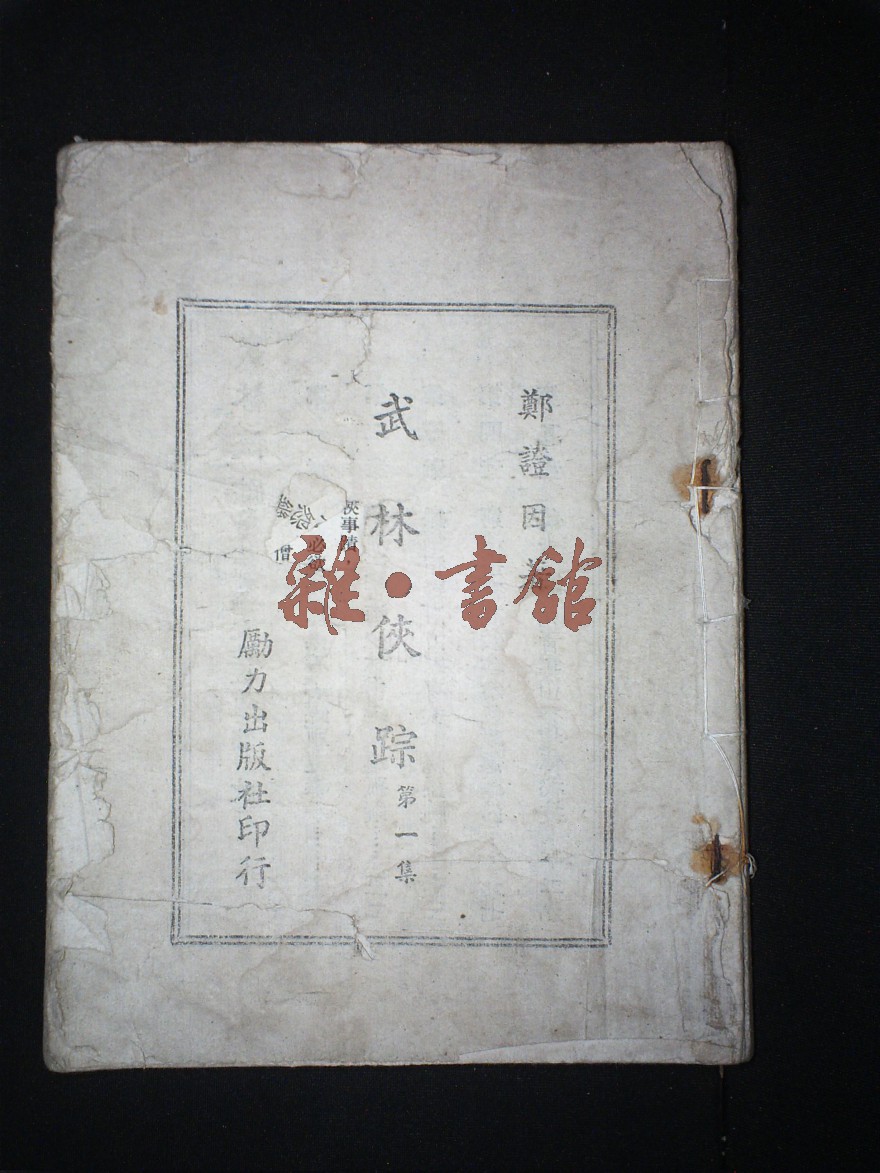 鄭證因著
武林俠踪
第一集
俠事蹟
僧
勵力出版社印行
雜·書舘